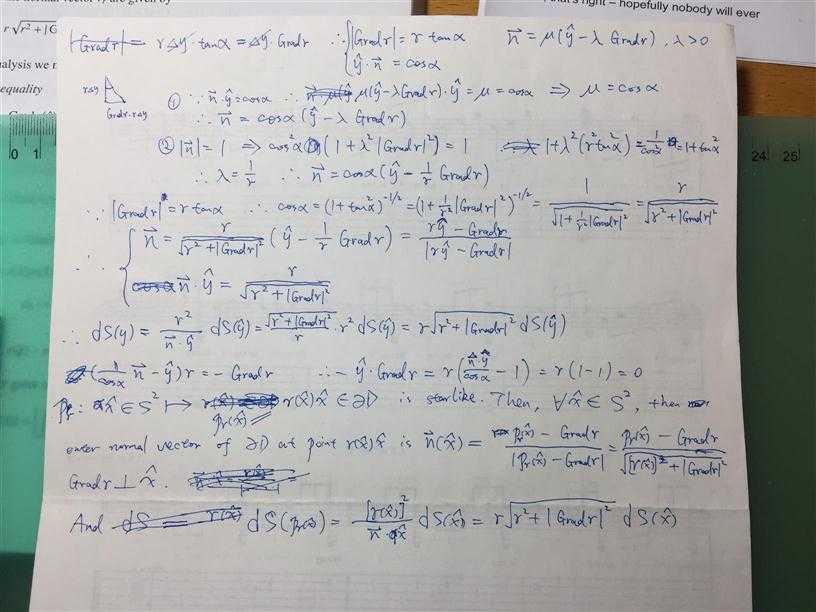 r√r² + |G
analysis we n
equality
that's right – hopefully nobody will ever
|Grad r| = r△y·tanα = △y·Grad r ∴ { |Grad r| = r tanα n⃗ = μ(ŷ − λ Grad r), λ>0
ŷ·n⃗ = cosα
r△y
Grad r·△y
① ∵ n⃗·ŷ = cosα ∴ μ(ŷ − λ Grad r)·ŷ = μ = cosα ⟹ μ = cosα
∴ n⃗ = cosα(ŷ − λ Grad r)
② |n⃗| = 1 ⟹ cos²α(1 + λ²|Grad r|²) = 1 1 + λ²(r²tan²α) = 1/cos²α = 1 + tan²α
∴ λ = 1/r ∴ n⃗ = cosα(ŷ − 1/r Grad r)
∵ |Grad r| = r tanα ∴ cosα = (1 + tan²α)^(-1/2) = (1 + 1/r²|Grad r|²)^(-1/2) = 1/√(1 + 1/r²|Grad r|²) = r/√(r² + |Grad r|²)
∴ { n⃗ = r/√(r² + |Grad r|²) (ŷ − 1/r Grad r) = (rŷ − Grad r)/|rŷ − Grad r|
n⃗·ŷ = r/√(r² + |Grad r|²)
∴ dS(y) = r²/(n⃗·ŷ) dS(ŷ) = √(r² + |Grad r|²)/r · r² dS(ŷ) = r√(r² + |Grad r|²) dS(ŷ)
(1/cosα n⃗ − ŷ)r = − Grad r ∴ − ŷ·Grad r = r(n̂·ŷ/cosα − 1) = r(1−1) = 0
Pr: x̂ ∈ S² ↦ r(x̂)x̂ ∈ ∂D is starlike. Then, ∀x̂ ∈ S², then
pr(x̂)
outer normal vector of ∂D at point r(x̂)x̂ is n⃗(x̂) = (pr(x̂) − Grad r)/|pr(x̂) − Grad r| = (pr(x̂) − Grad r)/√([r(x̂)]² + |Grad r|²)
Grad r ⊥ x̂.
And dS(pr(x̂)) = [r(x̂)]²/(n⃗·x̂) dS(x̂) = r√(r² + |Grad r|²) dS(x̂)
0 1
24 25